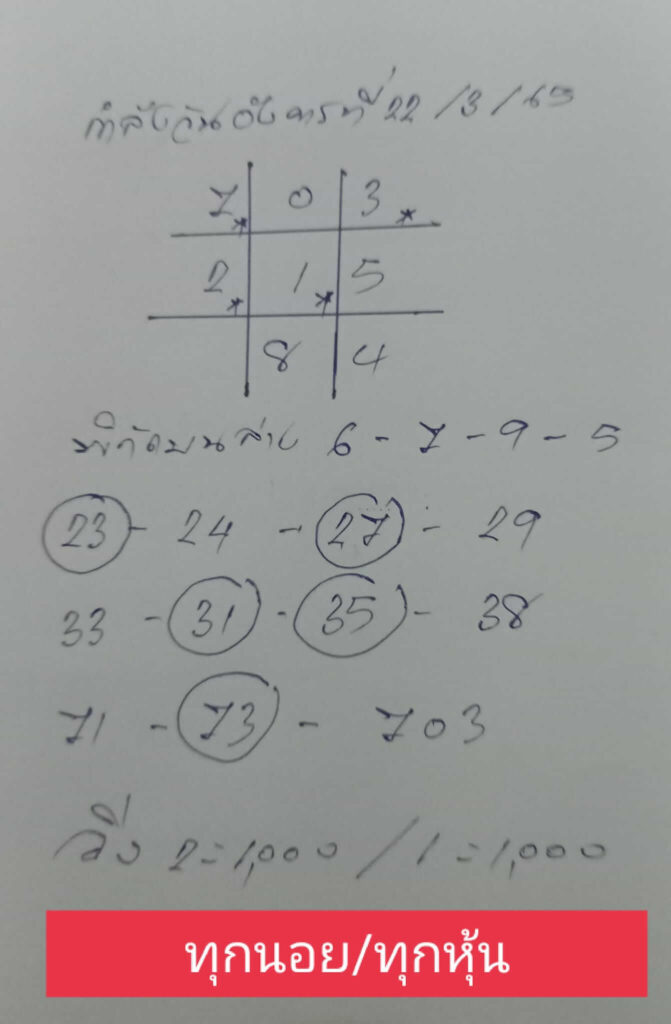 กำลังวันอังคารที่ 22/3/65
7 0 3
2 1 5
8 4
พิกัดบนล่าง 6-7-9-5
23 - 24 - 27 - 29
33 - 31 - 35 - 38
71 - 73 - 703
วิ่ง 2=1,000/1=1,000
ทุกนอย/ทุกหุ้น